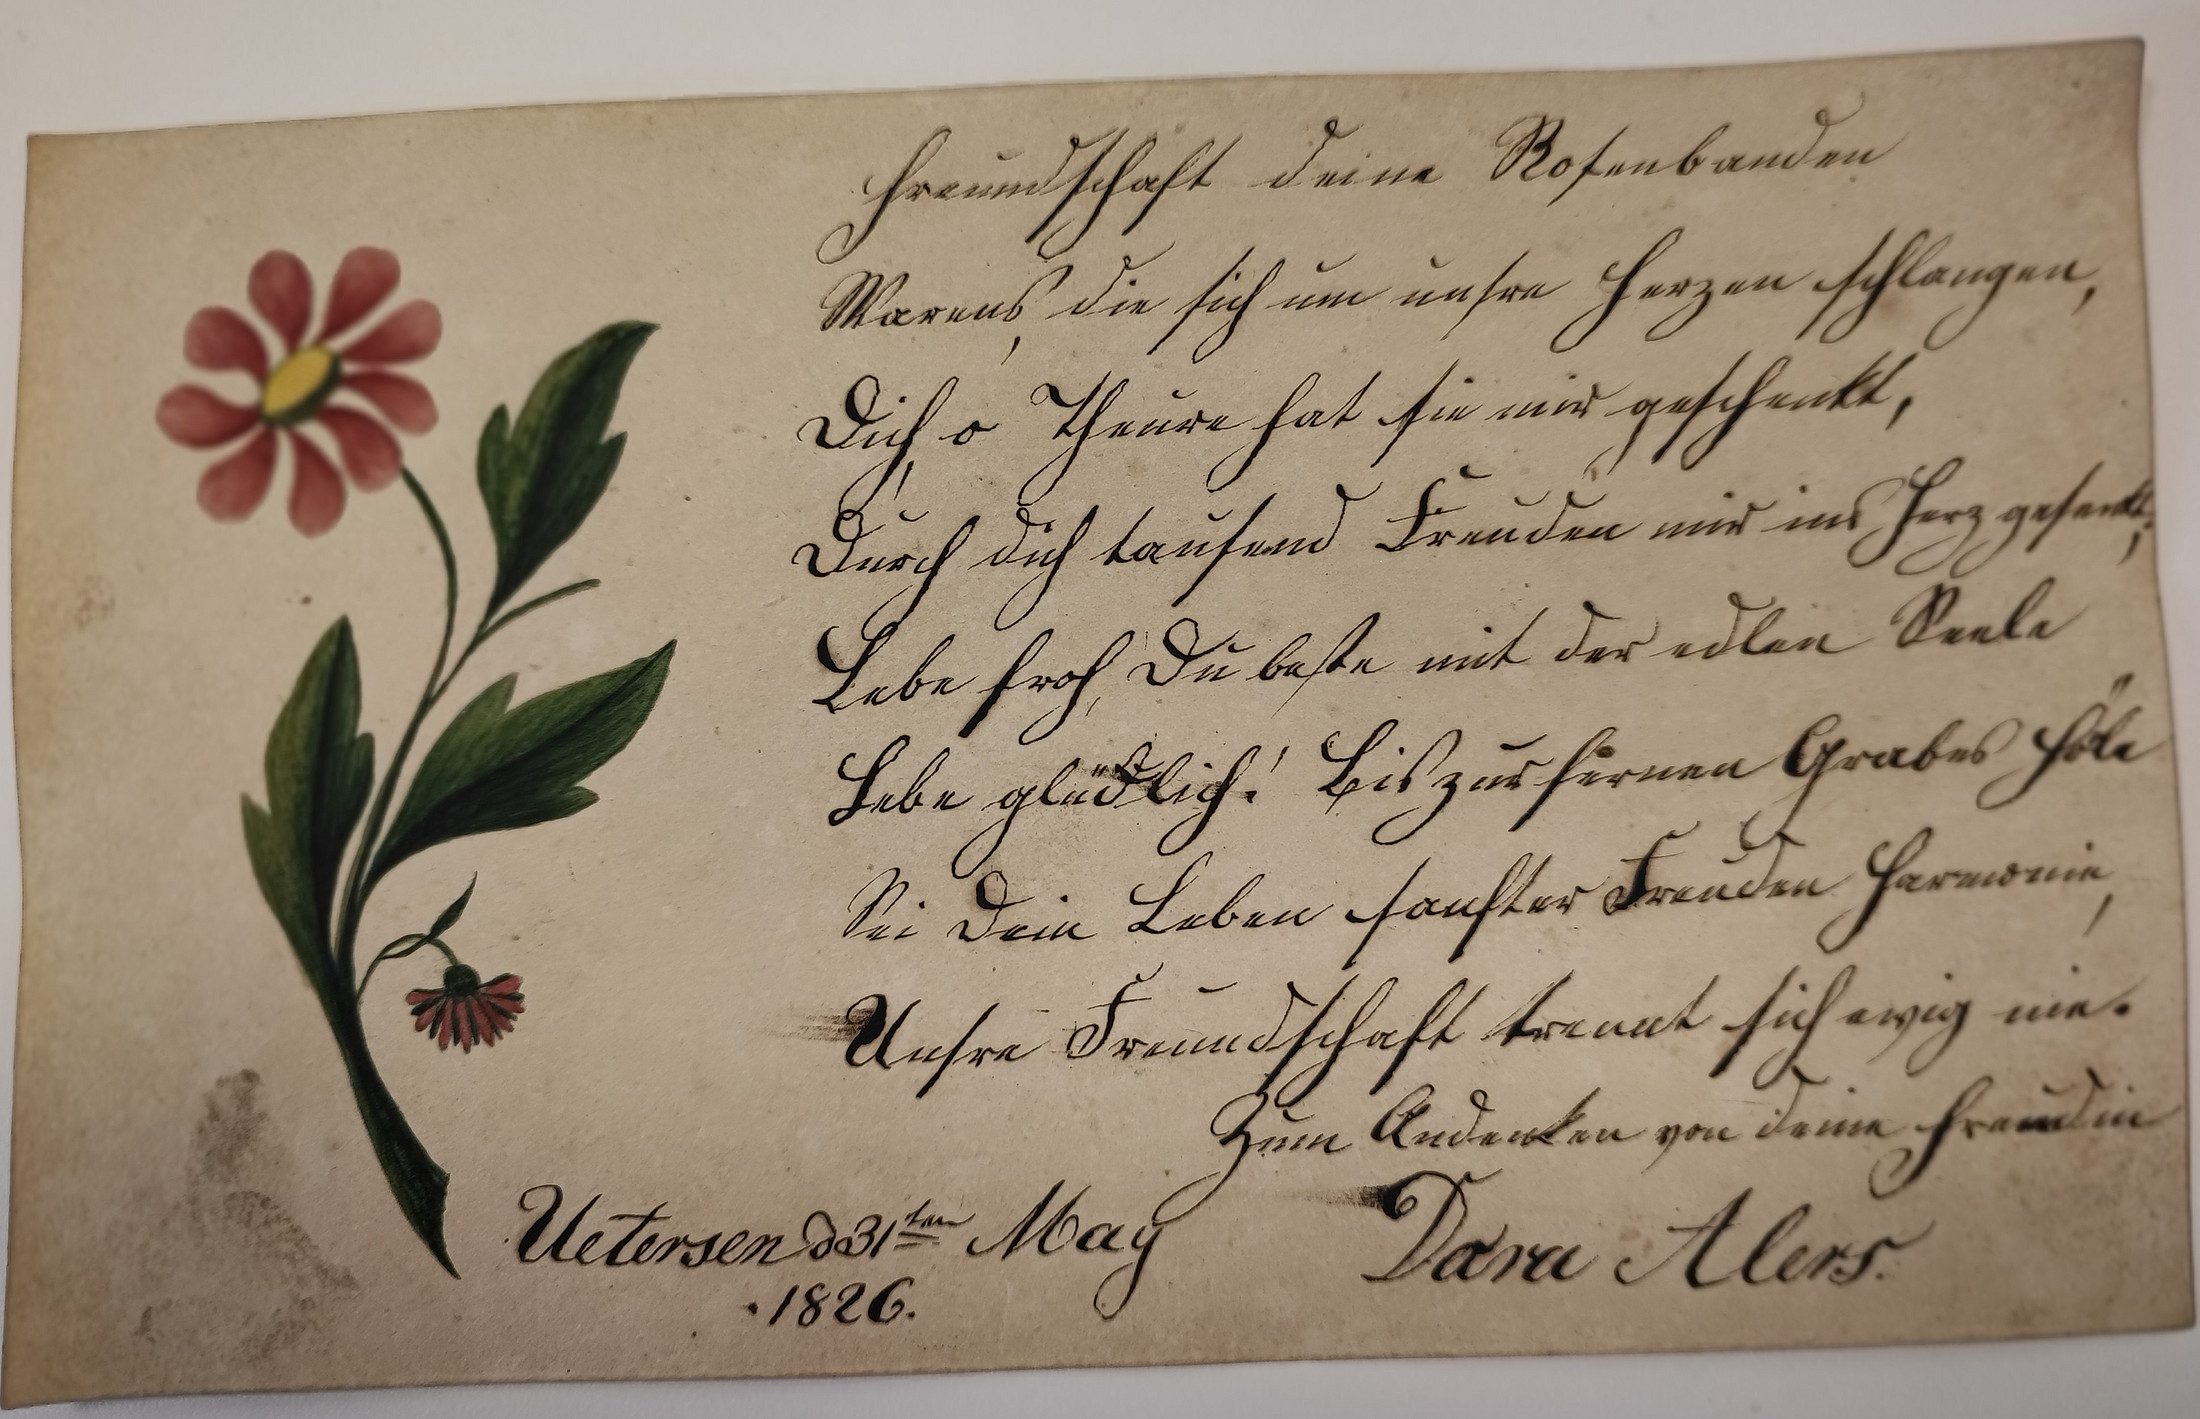 Freundschaft deine Rosenbanden
Warens, die sich um unsre Herzen schlangen,
Dich, o Theure hat sie mir geschenkt,
Durch dich tausend Freuden mir ins Herz gesenkt;
Lebe froh, Du beste mit der edlen Seele
Lebe glücklich! Bis zur fernen Grabes Höle
Sei Dein Leben sanfter Freuden Harmonie,
Unsre Freundschaft trennt sich ewig nie.
Zum Andenken von deine Freundin
Uetersen d 31ten May Dara Alers.
1826.